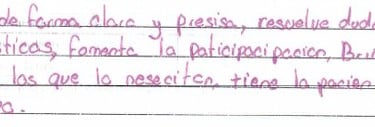 de forma clara y presisa, resuelve duda
sticas, fomenta la paticipacipacion, Bri
los que lo nesesiten, tiene la pacien